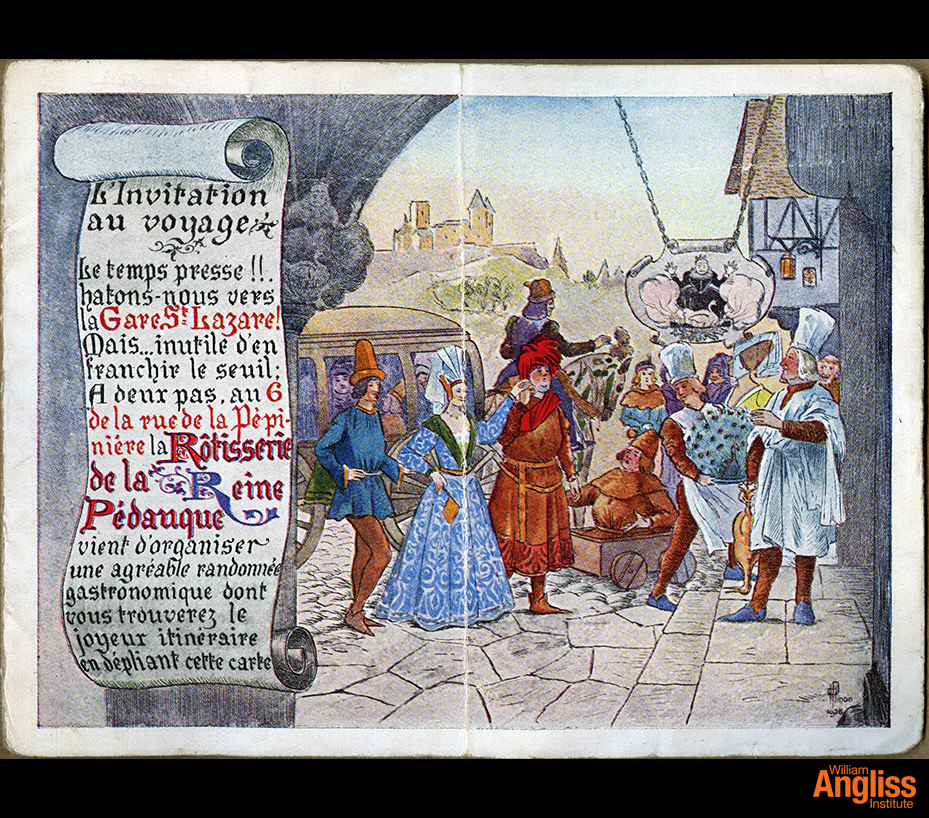 L'Invitation
au voyage
Le temps presse !!.
hatons-nous vers
la Gare St. Lazare!
Mais...inutile d'en
franchir le seuil;
A deux pas, au 6
de la rue de la Pépi-
nière la Rôtisserie
de la Reine
Pédauque
vient d'organiser
une agréable randonnée
gastronomique dont
vous trouverez le
joyeux itinéraire
en dépliant cette carte
William
Angliss
Institute